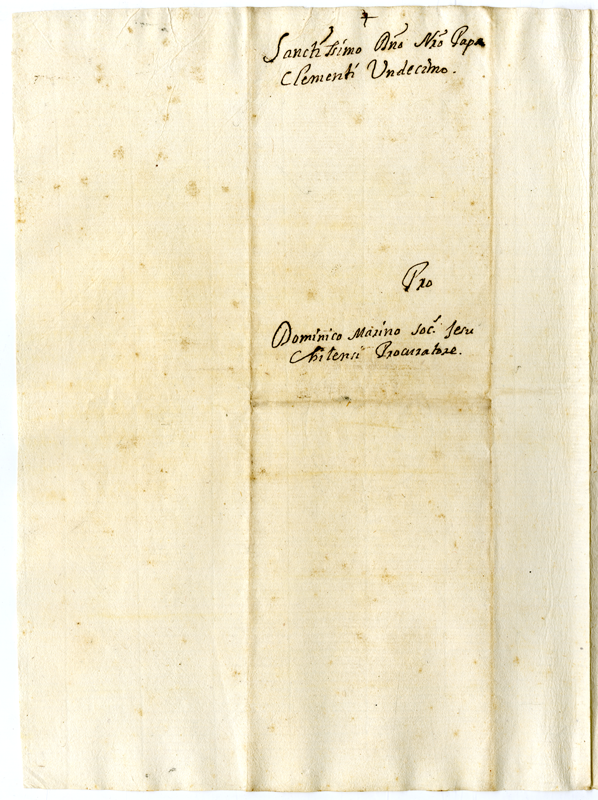 +
Sanctissimo Dño Nro Papæ
Clementi Undecimo.
Pro
Dominico Marino Soc. Jesu
Chilensi Procuratore.